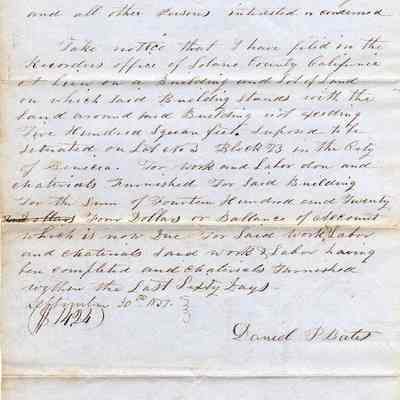 and all other Persons interested or concerned
Take notice that I have filed in the
Recorders office of Solano County California
a Lien on a Building and Lot of Land
on which said Building Stands with the
Land around said Building not exceeding
Five Hundred Square feet Suposed to be
situated on Lot No 3 Block 73 in the City
of Benicia. For Work and Labor don and
Materials Furnished For Said Building
For the Sum of Fourteen Hundred and Twenty
Dollars Four Dollars or Ballance of account
which is now Due For Said Work Labor
and Materials Said Work & Labor having
ben completed and Materials Furnished
within the Last Sixty Days.
September 30th 1857.
($1424)
Daniel P Bates